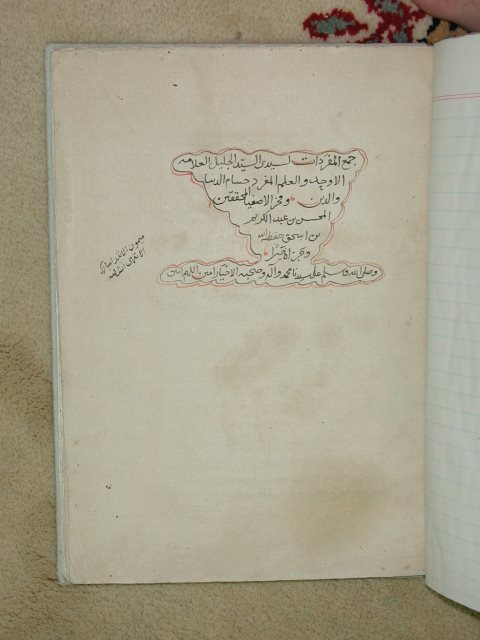 جمع المفردات لسيدي السيد الجليل العلامه
الاوحد والعلم المفرد حسام الدنيا
والدين وفخر الاصفيا المحققين
المحسن بن عبد الكريم
بن اسحق حفظه الله
وجزاه خيرًا
وصلى الله وسلم على سيدنا محمد وآله وصحبه الاخيار امين اللهم امين